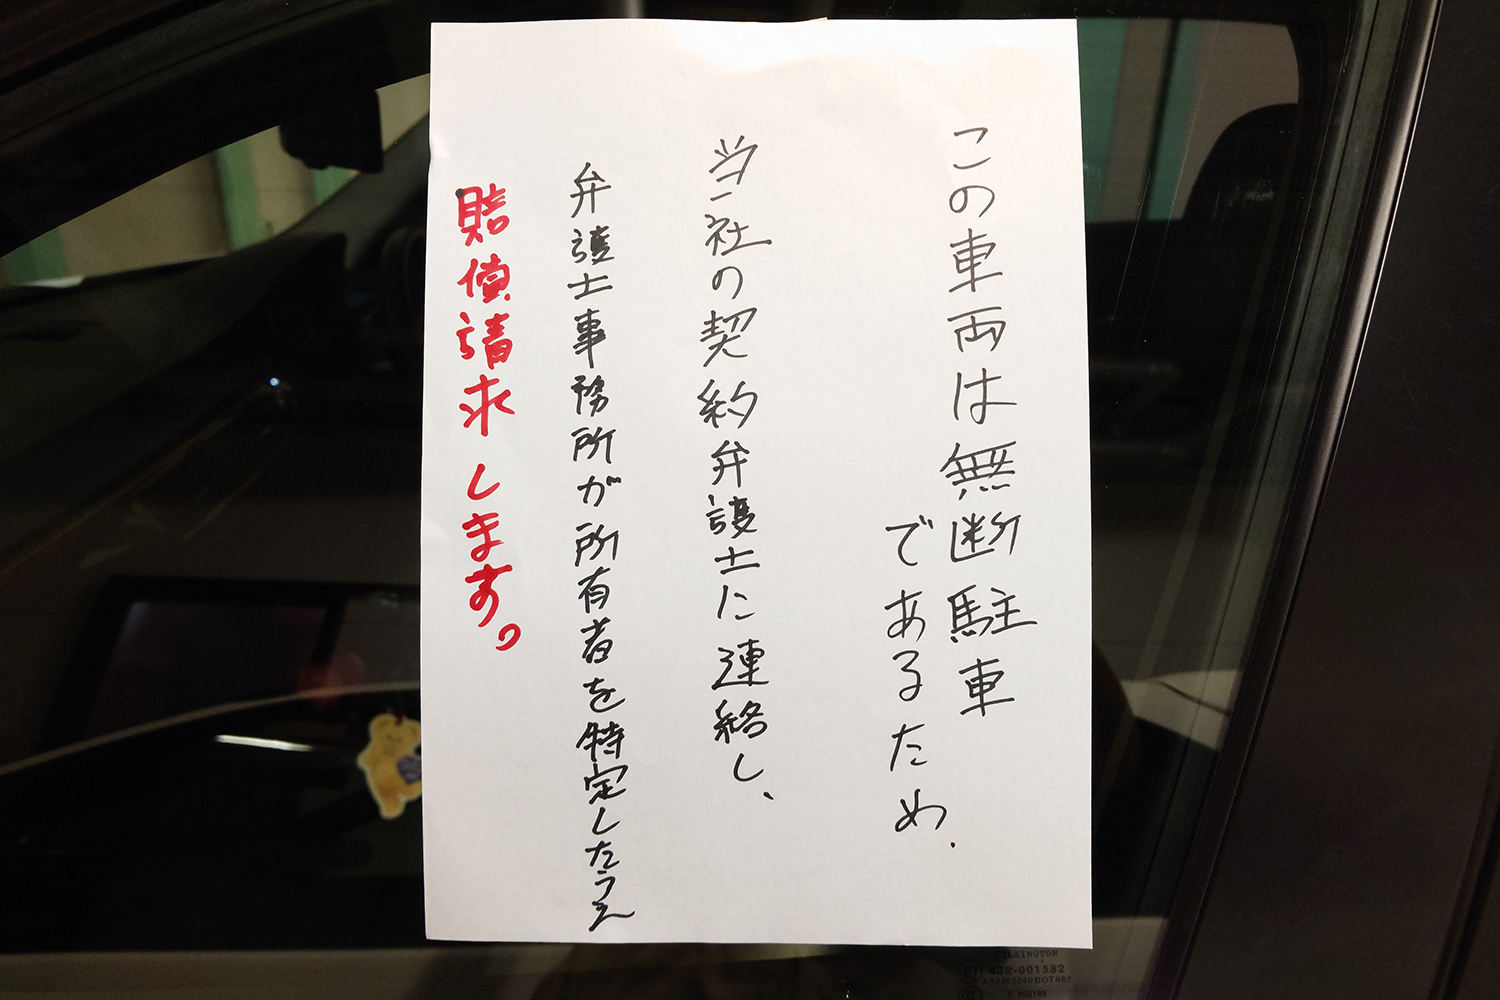 この車両は無断駐車
であるため、
当社の契約弁護士に連絡し、
弁護士事務所が所有者を特定したうえ
賠償請求します。
PILKINGTON
43R-001582